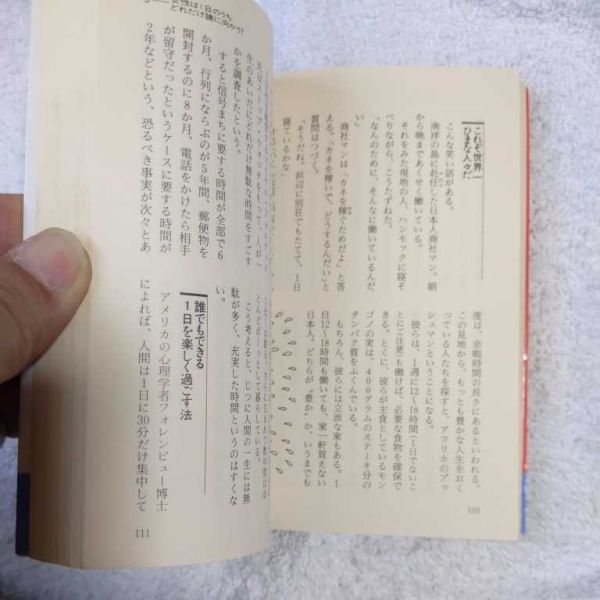 これぞ世界一
ひまな人々だ
こんな笑い話がある。
南洋の島に赴任した日本人商社マン。朝
から晩まであくせく働いている。
それをみた現地の人、ハンモックに寝そ
べりながら、こうたずねた。
「なんのために、そんなに働いているんだ
い」
商社マンは「カネを稼ぐためだよ」と答
える。「カネを稼いで、どうするんだい」と
質問はつづく。
「そうだね。浜辺に別荘でもたてて、1日
寝ているかな」
度は、余暇時間の長さにあるといわれる。
この見地から、もっとも豊かな人生をおく
っている人たちを探すと、アフリカのブッ
シュマンということになる。
彼らは、1週に12〜18時間(1日でないこ
とにご注意)も働けば、必要な食物を確保で
きる。とくに、彼らが主食としているモン
ゴンゴの実は、400グラムのステーキ分の
タンパク質をふくんでいる。
もちろん、彼らには立派な家もある。1
日12〜18時間も働いても、家一軒買えない
日本人。どちらが"豊か"か、いうまでも
110
女性は1日のうち
どれだけ鏡に向かう?
はストップ・ウォッチをもって、人が一
生のあいだにどれだけ無駄な時間をすごす
かを調査したという。
すると信号まちに要する時間が全部で6
か月、行列にならぶのが5年間、郵便物を
開封するのに8か月、電話をかけたら相手
が留守だったというケースに要する時間が
2年などという、恐るべき事実が次々とあ
とんどボーッとして暮らしている。
こう考えると、じつに人間の一生には無
駄が多く、充実した時間というのはすくな
い。
誰でもできる
1日を楽しく過ごす法
アメリカの心理学者フォレンビュー博士
によれば、人間は1日に30分だけ集中して
111